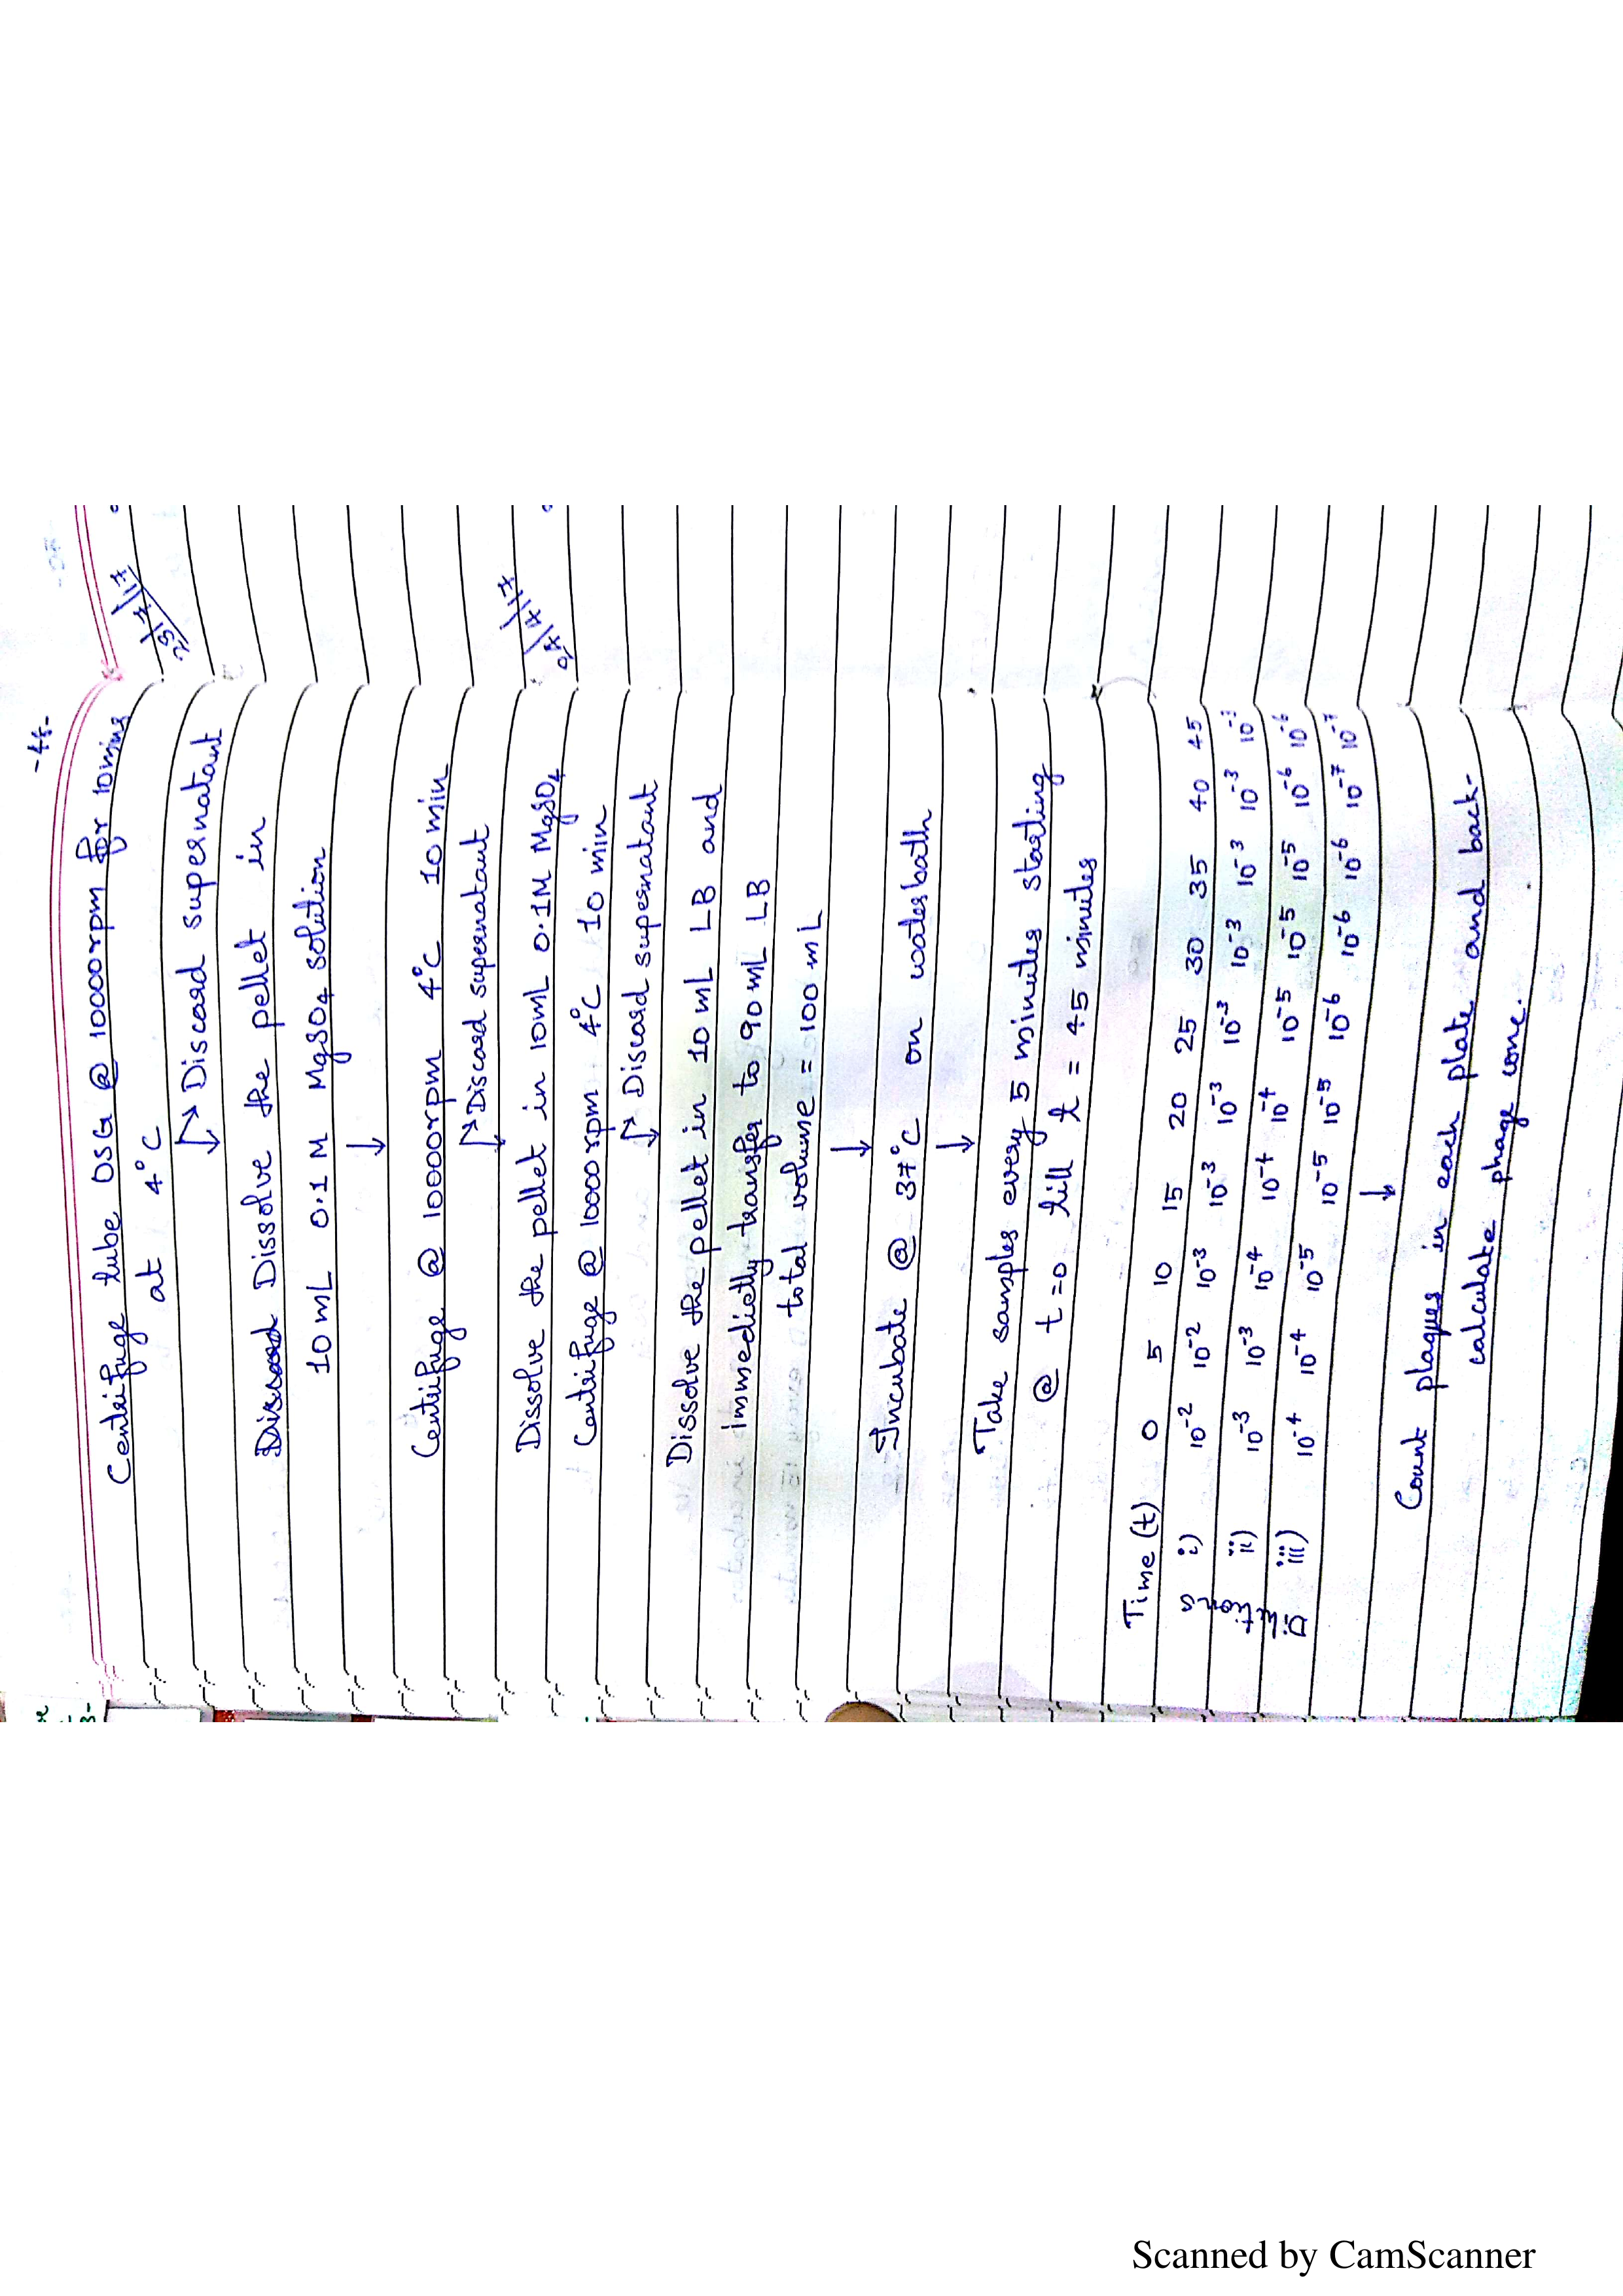 -48-
Centrifuge tube OSG @ 10000rpm for 10mins
at 4°C
→ Discard supernatant
Discard Dissolve the pellet in
10 mL 0.1 M MgSO4 solution
↓
Centrifuge @ 10000rpm 4°C 10 min
→ Discard supernatant
Dissolve the pellet in 10mL 0.1M MgSO4
Centrifuge @ 10000rpm 4°C 10 min
→ Discard supernatant
Dissolve the pellet in 10 mL LB and
immedietly transfer to 90 mL LB
total volume = 100 mL
↓
Incubate @ 37°C on waterbath
↓
Take samples every 5 minutes starting
@ t=0 till t = 45 minutes
Time (t) 0 5 10 15 20 25 30 35 40 45
i) 10⁻² 10⁻² 10⁻³ 10⁻³ 10⁻³ 10⁻³ 10⁻³ 10⁻³ 10⁻³ 10⁻³
ii) 10⁻³ 10⁻³ 10⁻⁴ 10⁻⁴ 10⁻⁴ 10⁻⁵ 10⁻⁵ 10⁻⁵ 10⁻⁶ 10⁻⁶
iii) 10⁻⁴ 10⁻⁴ 10⁻⁵ 10⁻⁵ 10⁻⁵ 10⁻⁶ 10⁻⁶ 10⁻⁶ 10⁻⁷ 10⁻⁷
Dilutions
↓
Count plaques in each plate and back-
calculate phage conc.
Scanned by CamScanner